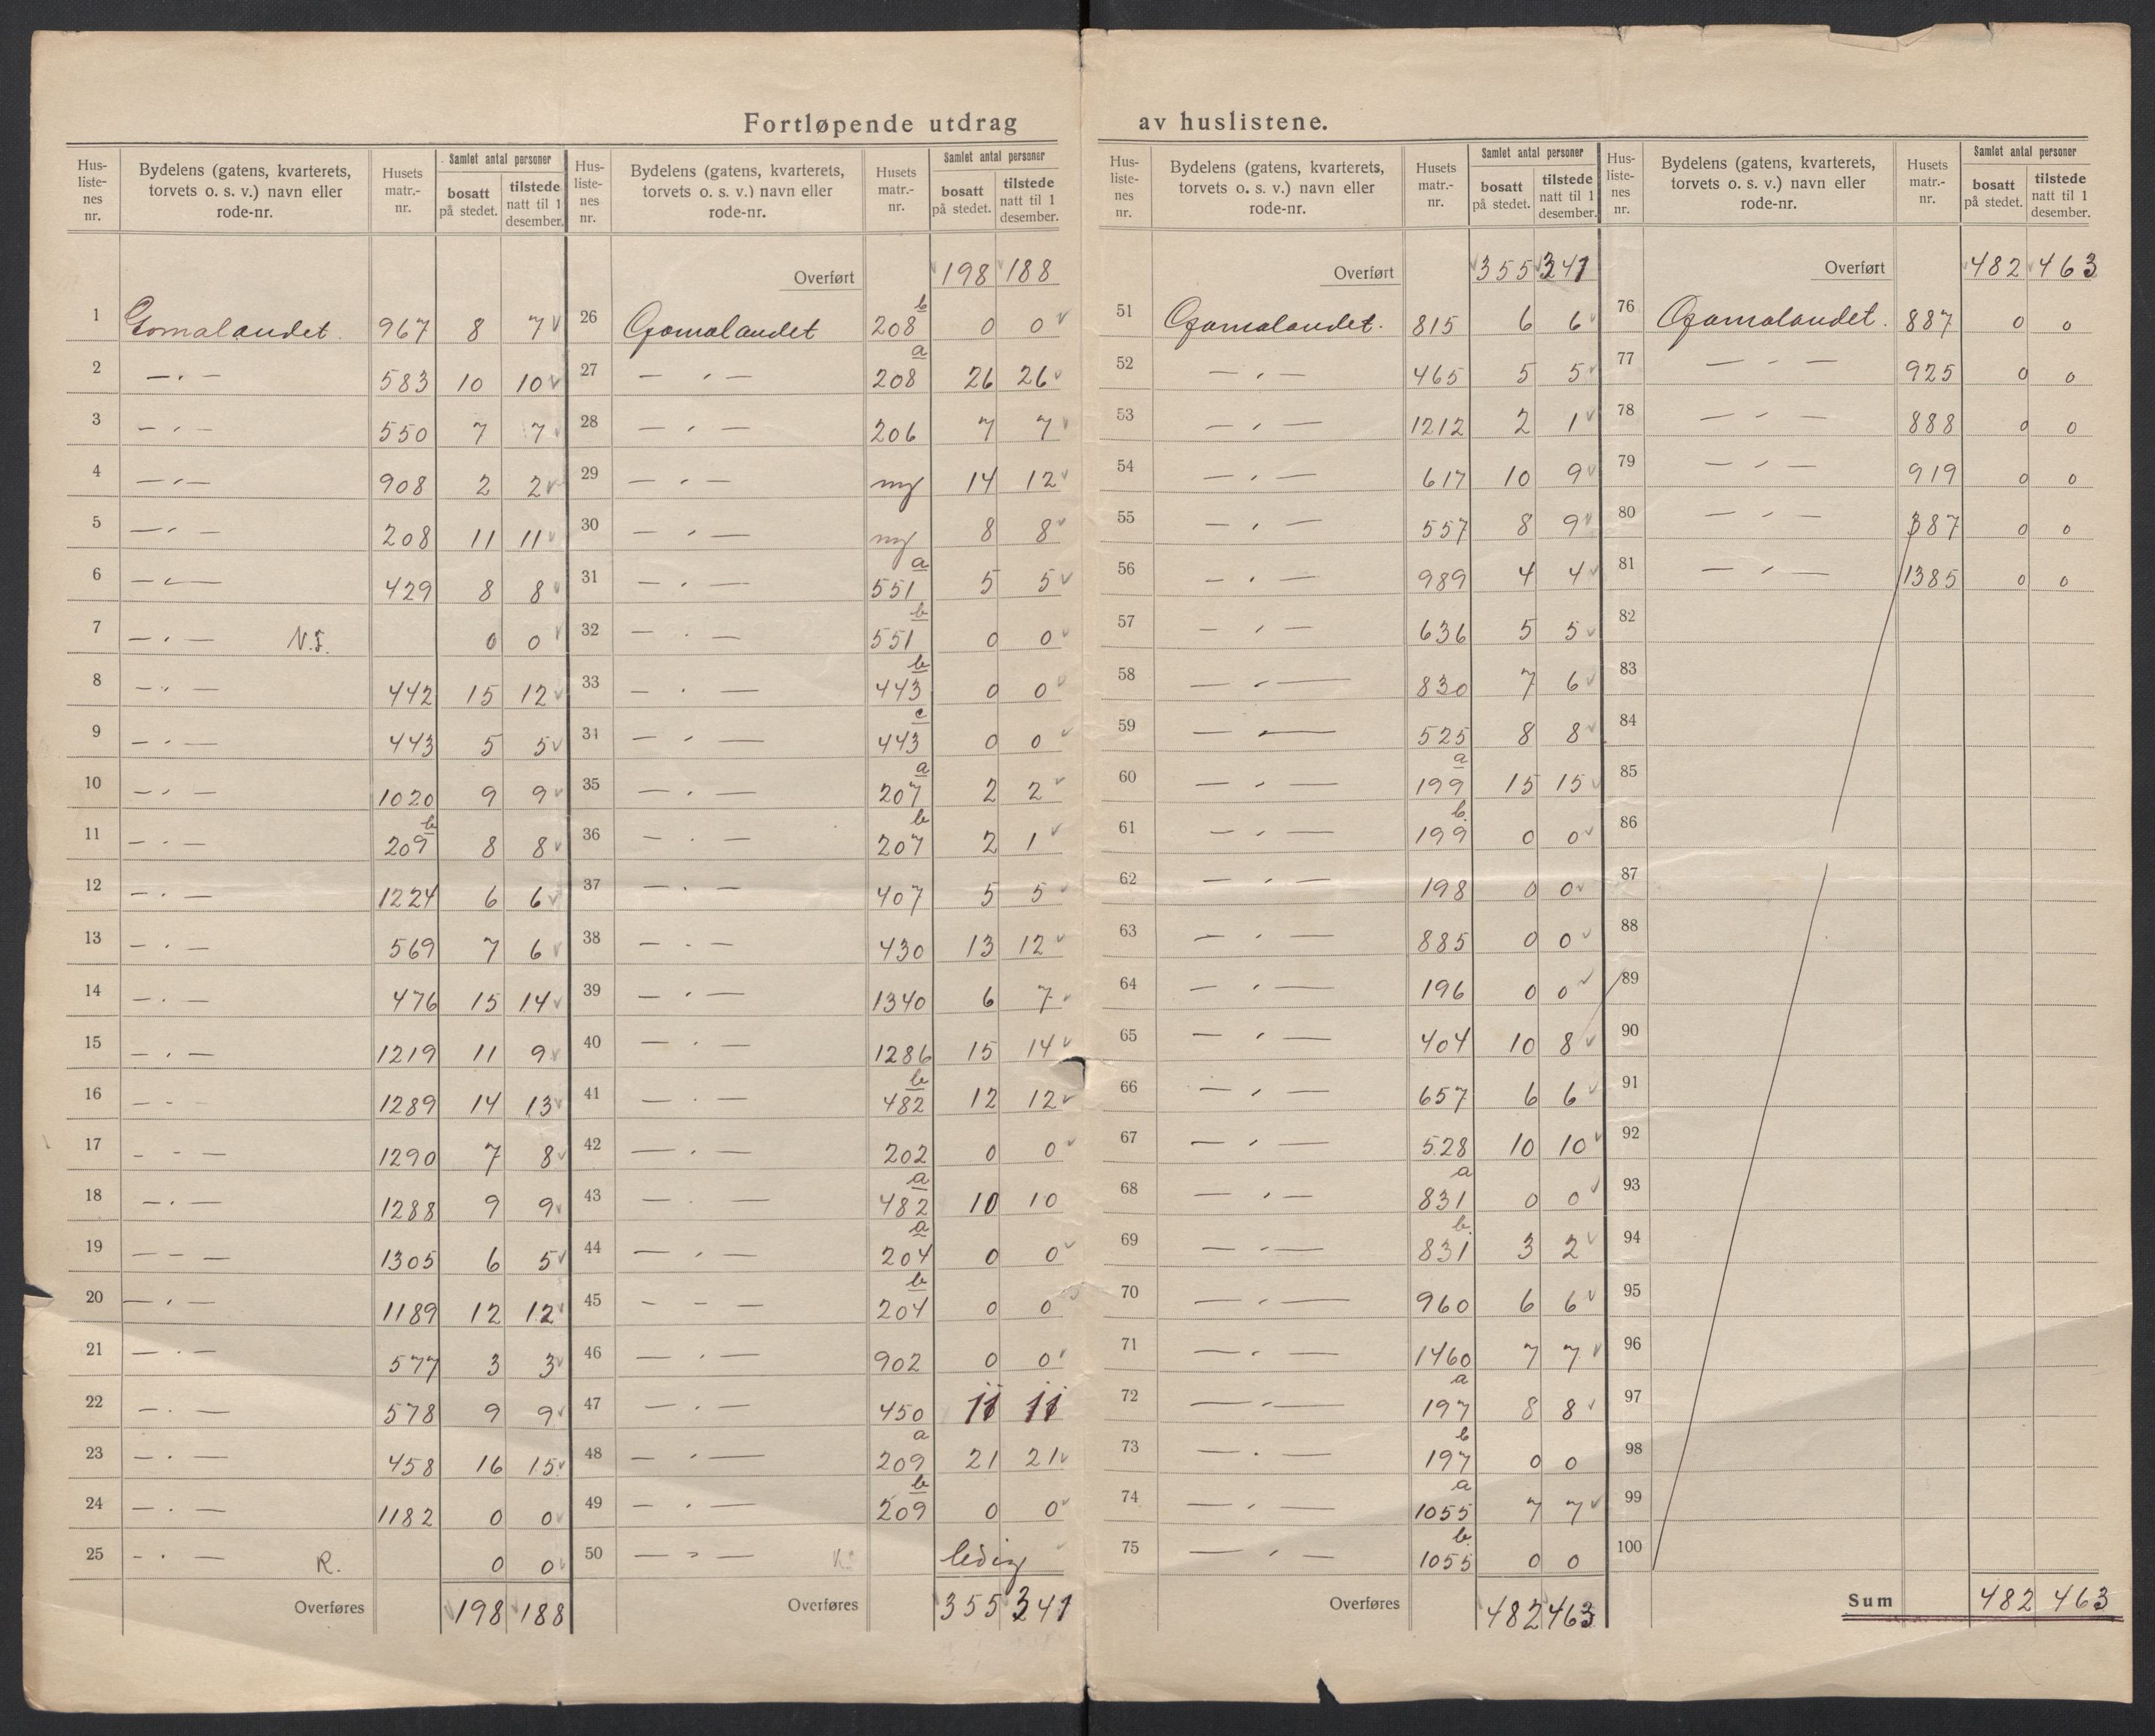 Fortløpende utdrag av huslistene.
Hus-liste-nes nr. | Bydelens (gatens, kvarterets, torvets o. s. v.) navn eller rode-nr. | Husets matr.-nr. | Samlet antal personer | bosatt på stedet. | tilstede natt til 1 desember.
1 Gomalandet. 967 8 7
2 — " — 583 10 10
3 — " — 550 7 7
4 — " — 908 2 2
5 — " — 208 11 11
6 — " — 429 8 8
7 — " — N.S. 0 0
8 — " — 442 15 12
9 — " — 443 5 5
10 — " — 1020 9 9
11 — " — 209 b 8 8
12 — " — 1224 6 6
13 — " — 569 7 6
14 — " — 476 15 14
15 — " — 1219 11 9
16 — " — 1289 14 13
17 — " — 1290 7 8
18 — " — 1288 9 9
19 — " — 1305 6 5
20 — " — 1189 12 12
21 — " — 577 3 3
22 — " — 578 9 9
23 — " — 458 16 15
24 — " — 1182 0 0
25 — " — R. 0 0
Overføres 198 188
Hus-liste-nes nr. | Bydelens (gatens, kvarterets, torvets o. s. v.) navn eller rode-nr. | Husets matr.-nr. | Samlet antal personer | bosatt på stedet. | tilstede natt til 1 desember.
Overført 198 188
26 Gomalandet 208 b 0 0
27 — " — 208 a 26 26
28 — " — 206 7 7
29 — " — ny 14 12
30 — " — ny 8 8
31 — " — 551 a 5 5
32 — " — 551 b 0 0
33 — " — 443 b 0 0
34 — " — 443 c 0 0
35 — " — 207 a 2 2
36 — " — 207 b 2 1
37 — " — 407 5 5
38 — " — 430 13 12
39 — " — 1340 6 7
40 — " — 1286 15 14
41 — " — 482 b 12 12
42 — " — 202 0 0
43 — " — 482 a 10 10
44 — " — 204 a 0 0
45 — " — 204 b 0 0
46 — " — 902 0 0
47 — " — 450 11 11
48 — " — 209 a 21 21
49 — " — 209 b 0 0
50 — " — ledig
Overføres 355 341
Hus-liste-nes nr. | Bydelens (gatens, kvarterets, torvets o. s. v.) navn eller rode-nr. | Husets matr.-nr. | Samlet antal personer | bosatt på stedet. | tilstede natt til 1 desember.
Overført 355 341
51 Gomalandet. 815 6 6
52 — " — 465 5 5
53 — " — 1212 2 1
54 — " — 617 10 9
55 — " — 557 8 9
56 — " — 989 4 4
57 — " — 636 5 5
58 — " — 830 7 6
59 — " — 525 8 8
60 — " — 199 a 15 15
61 — " — 199 b. 0 0
62 — " — 198 0 0
63 — " — 885 0 0
64 — " — 196 0 0
65 — " — 404 10 8
66 — " — 657 6 6
67 — " — 528 10 10
68 — " — 831 a 0 0
69 — " — 831 b. 3 2
70 — " — 960 6 6
71 — " — 1460 7 7
72 — " — 197 a 8 8
73 — " — 197 b 0 0
74 — " — 1055 a 7 7
75 — " — 1055 b. 0 0
Overføres 482 463
Hus-liste-nes nr. | Bydelens (gatens, kvarterets, torvets o. s. v.) navn eller rode-nr. | Husets matr.-nr. | Samlet antal personer | bosatt på stedet. | tilstede natt til 1 desember.
Overført 482 463
76 Gomalandet. 887 0 0
77 — " — 925 0 0
78 — " — 888 0 0
79 — " — 919 0 0
80 — " — 387 0 0
81 — " — 1385 0 0
82
83
84
85
86
87
88
89
90
91
92
93
94
95
96
97
98
99
100
Sum 482 463